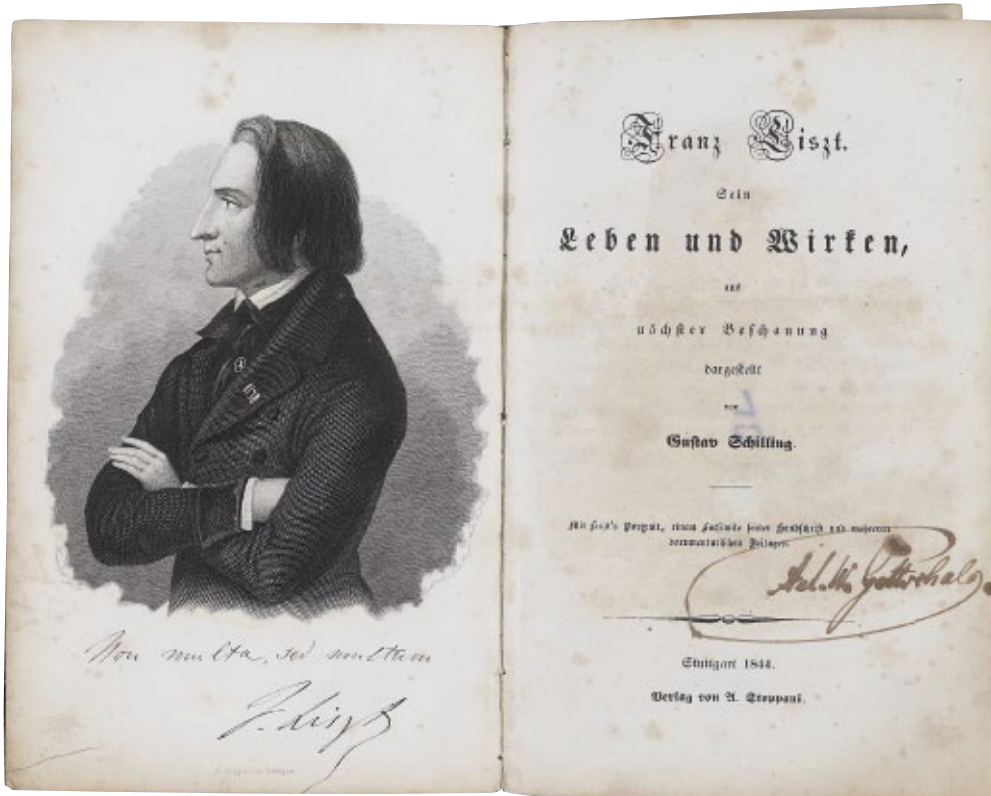 Non multa, sed multum
F. Liszt
Franz Liszt.
Sein
Leben und Wirken,
aus
nächster Beschauung
dargestellt
von
Gustav Schilling.
Mit Liszt's Portrait, einem Facsimile seiner Handschrift und mehreren
documentatischen Beilagen.
Gottschalg
Stuttgart 1844.
Verlag von A. Stoppani.